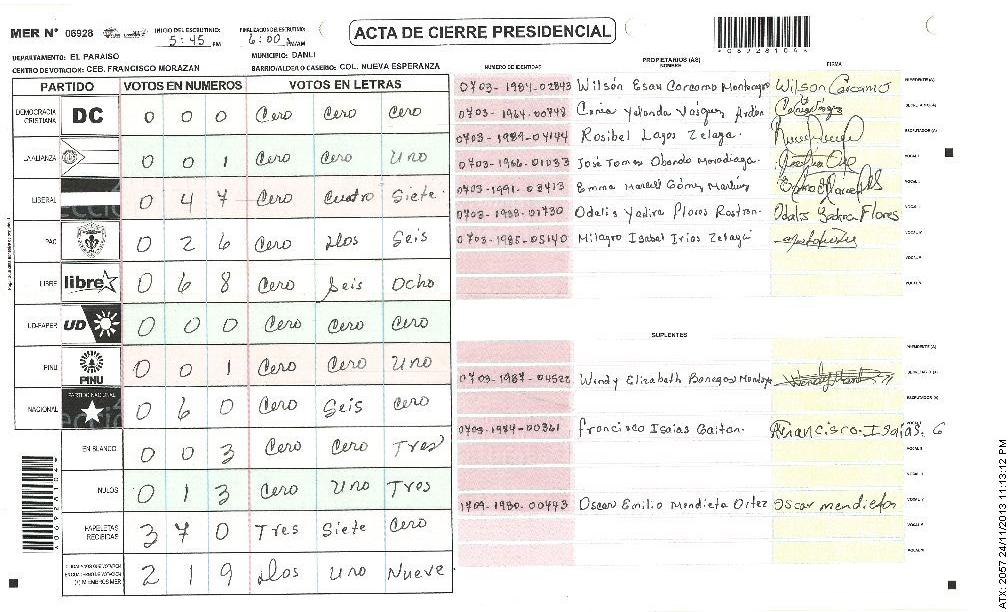 MER N° 06928
INICIO DEL ESCRUTINIO: 5:45 PM
FINALIZACION DEL ESCRUTINIO: 6:00 PM/AM
ACTA DE CIERRE PRESIDENCIAL
DEPARTAMENTO: EL PARAISO
MUNICIPIO: DANLI
CENTRO DE VOTACION: CEB. FRANCISCO MORAZAN
BARRIO/ALDEA O CASERIO: COL. NUEVA ESPERANZA
PARTIDO VOTOS EN NUMEROS VOTOS EN LETRAS
DEMOCRACIA CRISTIANA DC 0 0 0 Cero Cero Cero
0 0 1 Cero Cero Uno
LIBERAL 0 4 7 Cero Cuatro Siete
PAC 0 2 6 Cero Dos Seis
LIBRE libre 0 6 8 Cero Seis Ocho
UD-FAPER UD 0 0 0 Cero Cero Cero
PINU PINU 0 0 1 Cero Cero Uno
NACIONAL PARTIDO NACIONAL 0 6 0 Cero Seis Cero
EN BLANCO 0 0 3 Cero Cero Tres
NULOS 0 1 3 Cero Uno Tres
PAPELETAS RECIBIDAS 3 7 0 Tres Siete Cero
2 1 9 Dos Uno Nueve
PROPIETARIOS (AS)
NUMERO DE IDENTIDAD NOMBRE FIRMA
0703-1984-02843 Wilson Esau Carcamo Montenegro Wilson Carcamo
0703-1964-00748 Yolanda Vasquez
0703-1989-04144 Rosibel Lagos Zelaya
0703-1966-01033 José Tomas Obando Moradiaga
0703-1991-03413 Emma Gómez
0703-1988-01730 Odalis Yadira Flores Rostran Odalis Yadira Flores
0703-1985-05140 Milagro Isabel Irias Zelaya
SUPLENTES
0703-1987-04522 Wendy Elizabeth Banegas
0703-1984-00361 Francisco Isaias Gaitan Francisco Isaias. G
1709-1980-00443 Oscar Emilio Mendieta Ortez Oscar mendieta
ATX: 2057 24/11/2013 11:13:12 PM